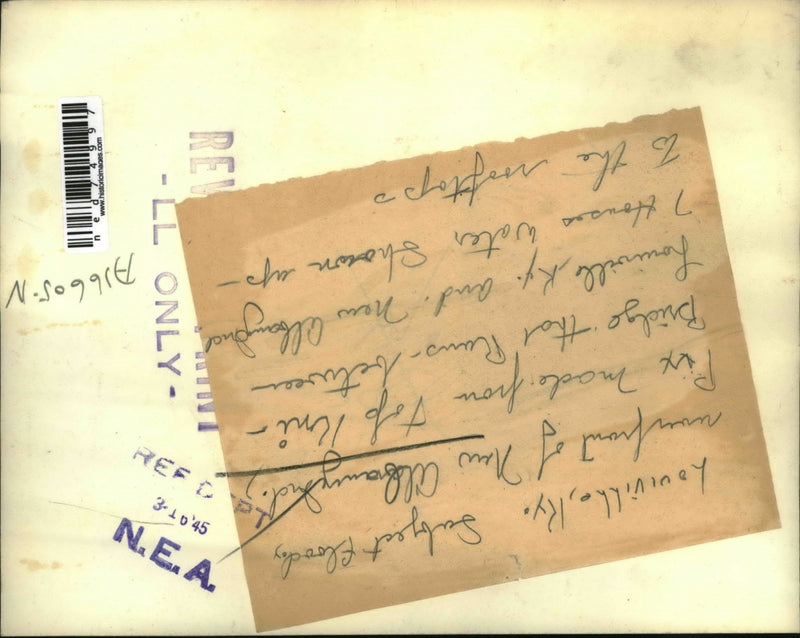 Louiville, Ky. Subject Floods
riverfront of New Albany, Ind.
Pix made from top
Bridge that Runs - between -
Louiville Ky. and. New Albany Ind
Houses Water Shown up -
to the rooftops
A16605-N
ned74997
www.historicimages.com
-LL ONLY-
REF DEPT
3-10'45
N.E.A.